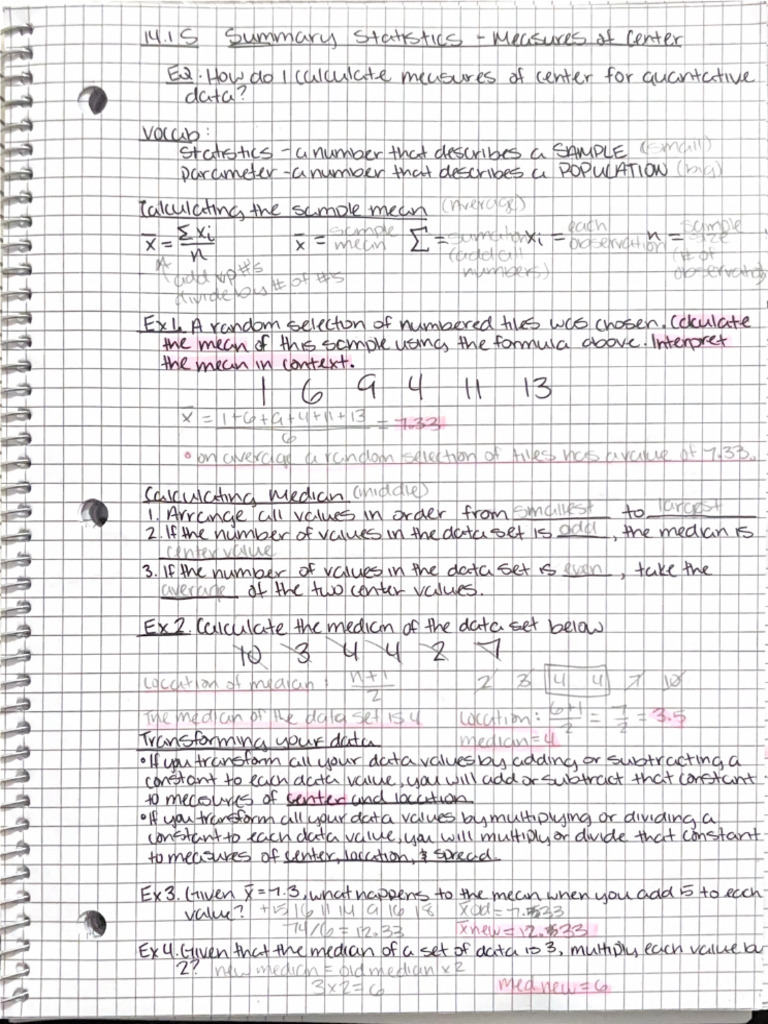 14.1 S Summary Statistics - Measures of Center
EQ: How do I calculate measures of center for quantative
data?
Vocab:
statistics - a number that describes a SAMPLE (small)
parameter - a number that describes a POPULATION (big)
Calculating the sample mean (Average)
x̄ = Σxi / n x̄ = sample mean Σ = sumation (add all numbers) xi = each observation n = sample size (# of observations)
add up #s
divide by # of #s
Ex 1. A random selection of numbered tiles was chosen. Calculate
the mean of this sample using the formula above. Interpret
the mean in context.
1 6 9 4 11 13
x̄ = 1+6+9+4+11+13 / 6 = 7.33
• on average a random selection of tiles has a value of 7.33.
Calculating Median (middle)
1. Arrange all values in order from smallest to largest
2. If the number of values in the data set is odd, the median is
center value
3. If the number of values in the data set is even, take the
average of the two center values.
Ex 2. Calculate the median of the data set below
10 3 4 4 2 7
Location of median: n+1 / 2 2 3 4 4 7 10
The median of the data set is 4 Location: 6+1 / 2 = 7 / 2 = 3.5
Transforming your data median = 4
• If you transform all your data values by adding or subtracting a
constant to each data value, you will add or subtract that constant
to measures of center and location
• If you transform all your data values by multiplying or dividing a
constant to each data value, you will multiply or divide that constant
to measures of center, location, & spread.
Ex 3. Given x̄ = 7.3, what happens to the mean when you add 5 to each
value? +5 6 11 14 9 16 18 x̄old = 7.33
74/6 = 12.33 x̄new = 12.33
Ex 4. Given that the median of a set of data is 3, multiply each value by
2? new median = old median x 2
3 x 2 = 6 med new = 6